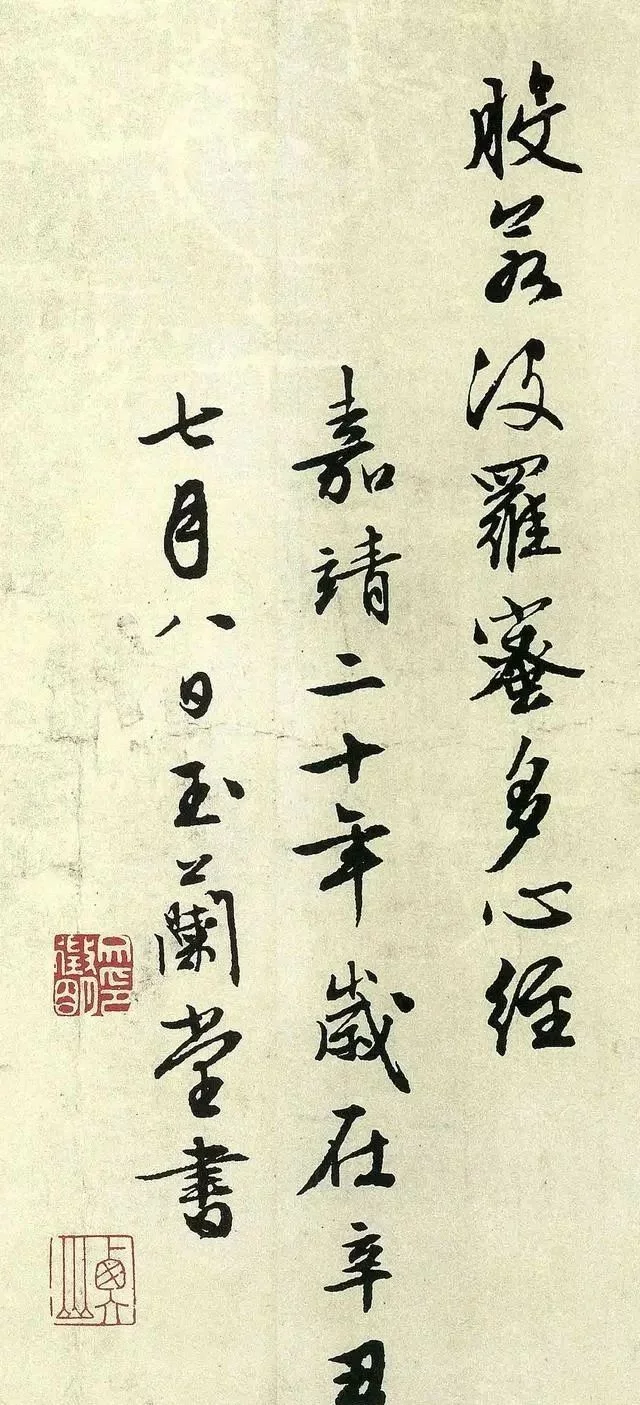 般若波羅蜜多心經
嘉靖二十年歲在辛丑
七月八日玉蘭堂書
徵明印